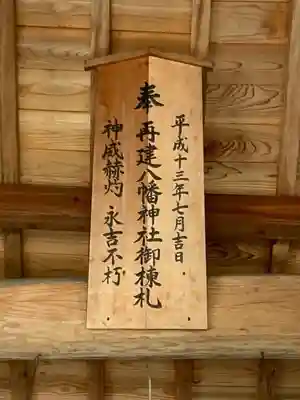 平成十三年七月吉日
奉再建八幡神社御棟札
神威赫灼 永吉不朽